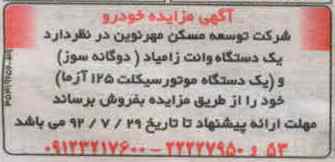 آگهی مزایده خودرو
شرکت توسعه مسکن مهرنوین در نظردارد
یک دستگاه وانت زامیاد ( دوگانه سوز)
و (یک دستگاه موتورسیکلت ۱۲۵ آزما)
خود را از طریق مزایده بفروش برساند
مهلت ارائه پیشنهاد تا تاریخ ۲۹ / ۷ / ۹۲ می باشد
۵۳ و ۲۲۲۲۷۹۵۰ - ۰۹۱۲۳۲۱۷۶۰۰